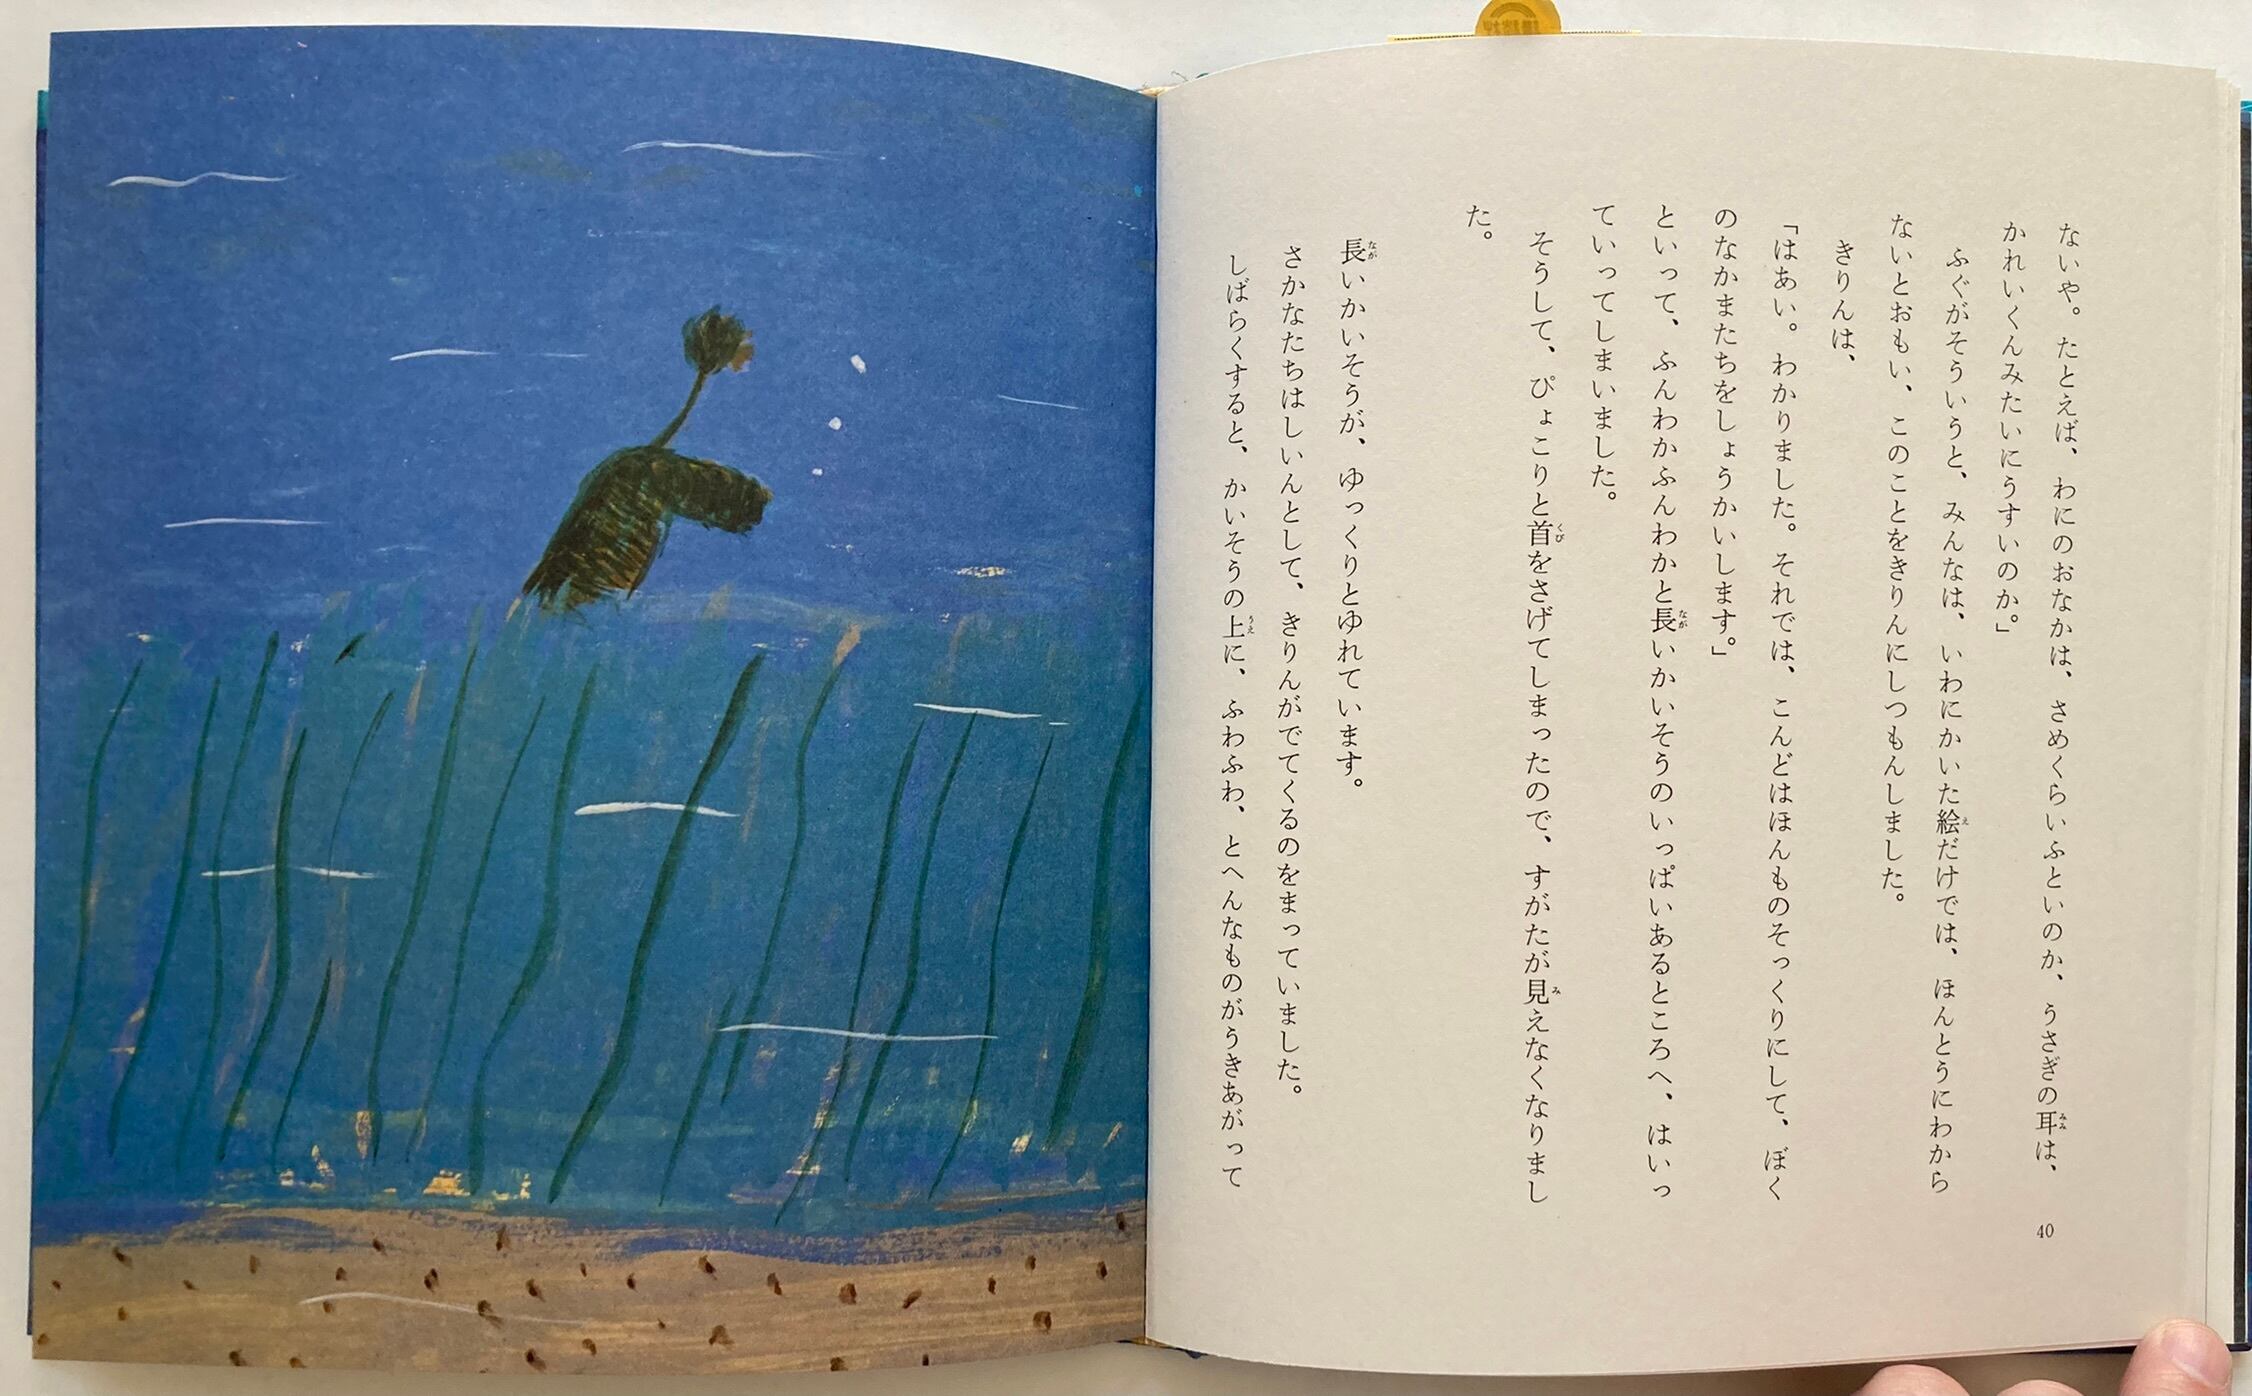 ないや。たとえば、わにのおなかは、さめくらいふといのか、うさぎの耳は、
かれいくんみたいにうすいのか。」
ふぐがそういうと、みんなは、いわにかいた絵だけでは、ほんとうにわから
ないとおもい、このことをきりんにしつもんしました。
きりんは、
「はあい。わかりました。それでは、こんどはほんものそっくりにして、ぼく
のなかまたちをしょうかいします。」
といって、ふんわかふんわかと長いかいそうのいっぱいあるところへ、はいっ
ていってしまいました。
そうして、ぴょこりと首をさげてしまったので、すがたが見えなくなりまし
た。
長いかいそうが、ゆっくりとゆれています。
さかなたちはしいんとして、きりんがでてくるのをまっていました。
しばらくすると、かいそうの上に、ふわふわ、とへんなものがうきあがって
40